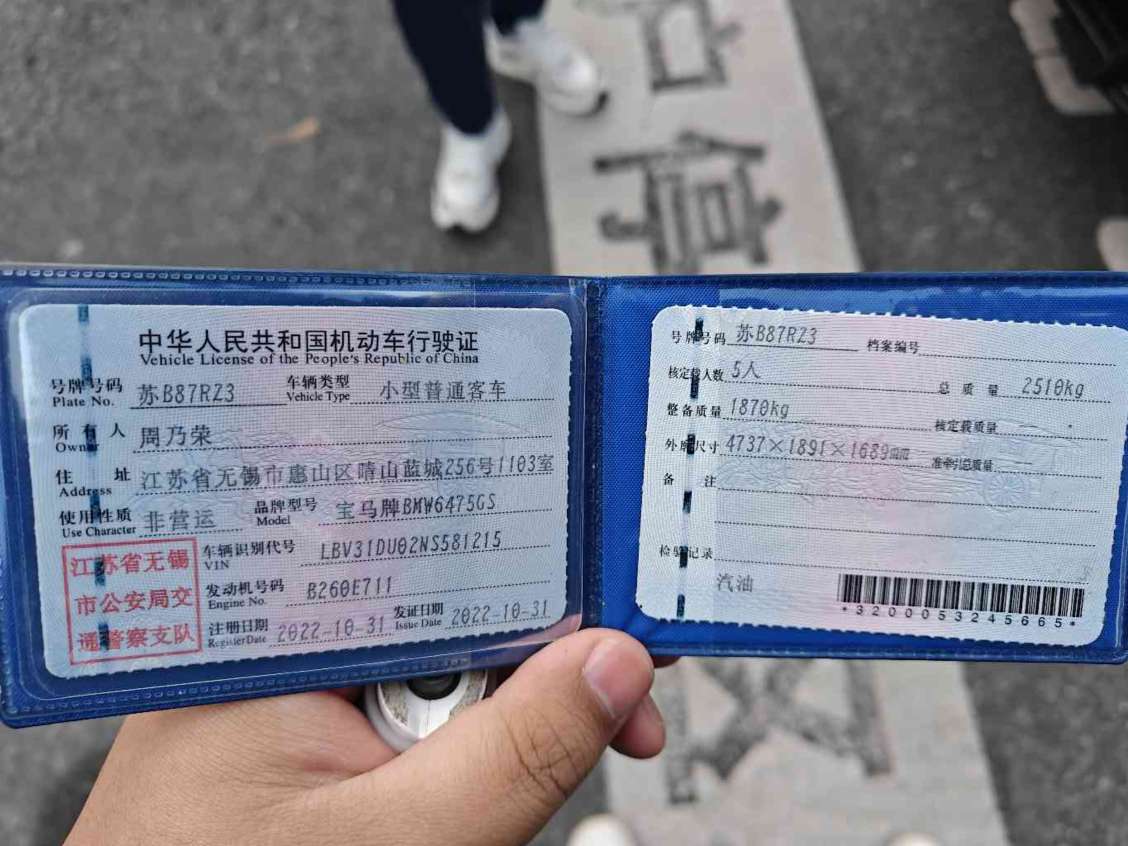 中华人民共和国机动车行驶证
Vehicle License of the People's Republic of China
号牌号码 苏B87RZ3 车辆类型 小型普通客车
Plate No. Vehicle Type
所有人 周乃荣
Owner
住址 江苏省无锡市惠山区晴山蓝城256号1103室
Address
使用性质 非营运 品牌型号 宝马牌BMW6475GS
Use Character Model
江苏省无锡
市公安局交
通警察支队
车辆识别代号 LBV31DU02NS581215
VIN
发动机号码 B260E711
Engine No.
注册日期 2022-10-31 发证日期 2022-10-31
Register Date Issue Date
号牌号码 苏B87RZ3 档案编号
核定载人数 5人 总质量 2510kg
整备质量 1870kg 核定载质量 --
外廓尺寸 4737×1891×1689mm 准牵引总质量 --
备注
检验记录
汽油
*3200053245665*